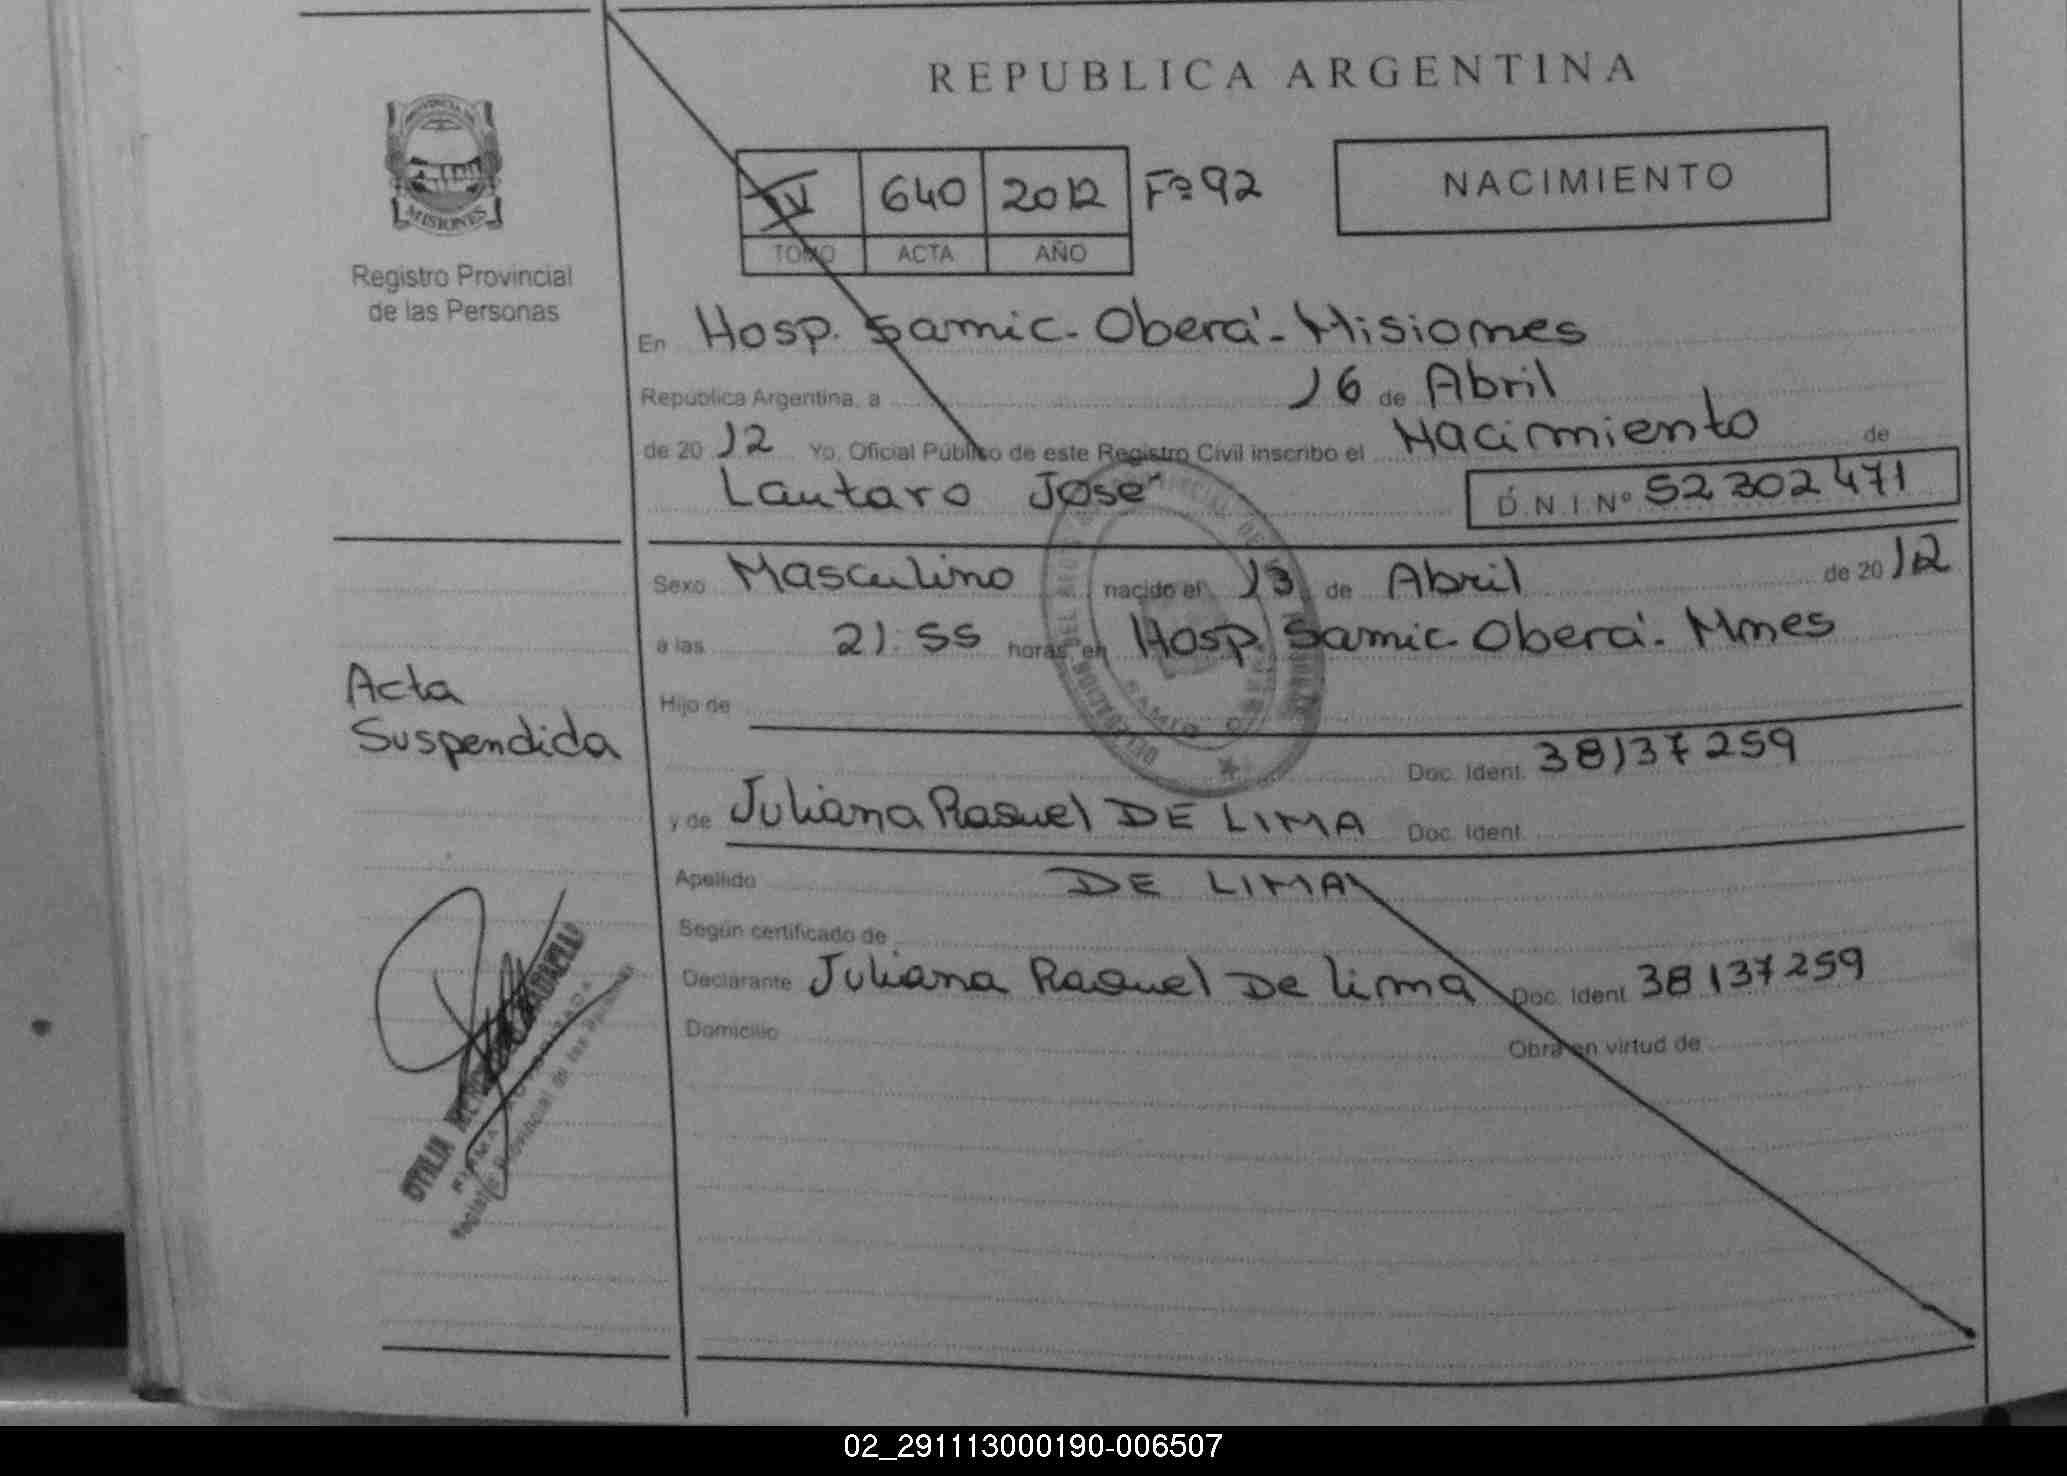 REPUBLICA ARGENTINA
PROVINCIA DE
MISIONES
Registro Provincial
de las Personas
IV 640 2012 Fº 92
TOMO ACTA AÑO
NACIMIENTO
En Hosp. Samic - Oberá - Misiones
República Argentina, a 16 de Abril
de 20 12 Yo, Oficial Público de este Registro Civil inscribo el Nacimiento de
Lautaro José D.N.I.Nº 52302471
Sexo Masculino nacido el 13 de Abril de 2012
a las 21:55 horas en Hosp. Samic - Oberá - Mnes
Hijo de
Doc. Ident. 38137259
y de Juliana Raquel DE LIMA Doc. Ident.
Apellido DE LIMA
Según certificado de
Declarante Juliana Raquel De Lima Doc. Ident. 38137259
Domicilio Obra en virtud de
Acta
Suspendida
OTILIA
FIRMA AUTORIZADA
Registro Provincial de las Personas
02_291113000190-006507